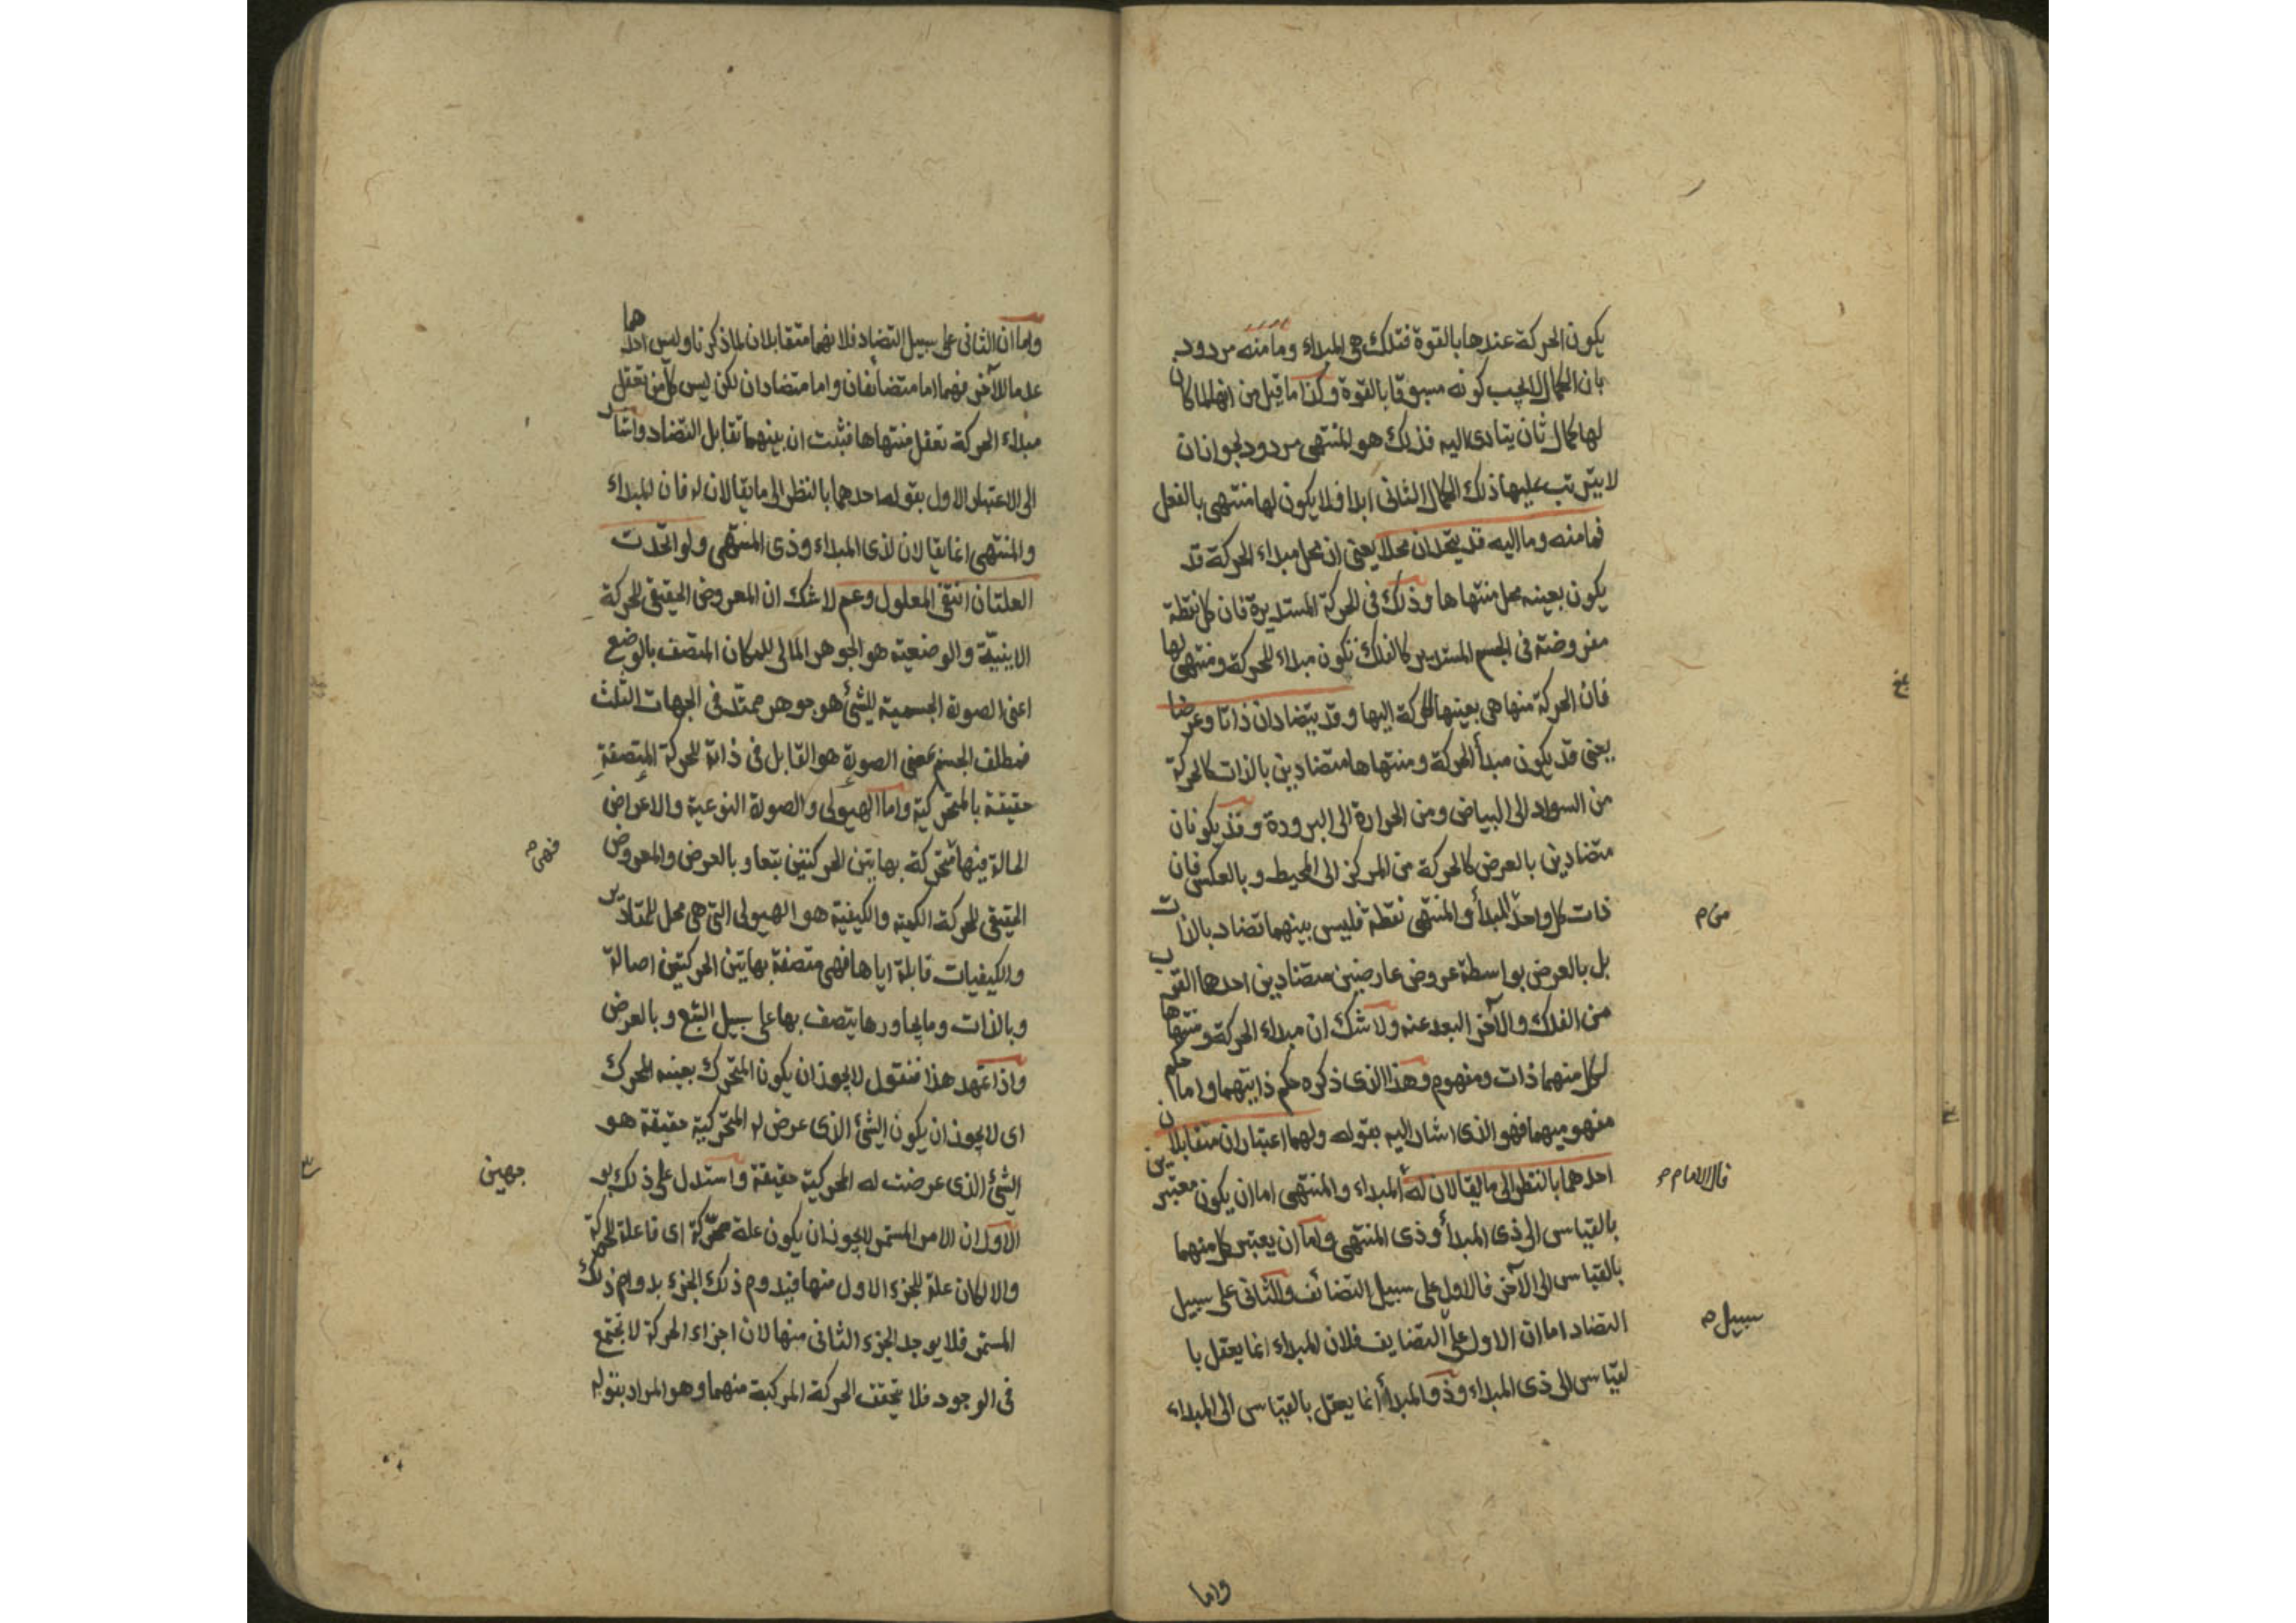 يكون الحركة عندها بالقوة فتلك هى المبداء وما منه مردود
بان الكمال لا يجب كونه مسبوقا بالقوة وكذا ما قيل من انها لما كان
لها كمال ثان يتادى اليه فذلك هو المنتهى مردود لجواز ان
لا يترتب عليها ذلك الكمال الثانى ابدا فلا يكون لها منتهى بالفعل
فما منه وما اليه قد يتحدان محلا يعنى ان محل مبداء الحركة قد
يكون بعينه محل منتهاها وذلك فى الحركة المستديرة فان كل نقطة
مفروضة فى الجسم المستدير كالفلك تكون مبداء للحركة ومنتهى لها
فان الحركة منها هى بعينها الحركة اليها وقد يتضادان ذاتا وعرضا
يعنى قد يكون مبدأ الحركة ومنتهاها متضادين بالذات كالحركة
من السواد الى البياض ومن الحرارة الى البرودة وقد يكونان
متضادين بالعرض كالحركة من المركز الى المحيط وبالعكس فان
ذات كل واحد المبدأ والمنتهى نقطة فليس بينهما تضاد بالذات
من م
بل بالعرض بواسطة عروض عارضين متضادين احدها القرب
من الفلك والآخر البعد عنه ولا شك ان مبداء الحركة ومنتهاها
لكل منهما ذات ومفهوم وهذا الذى ذكره حكم ذاتيهما واما حكم
مفهوميهما فهو الذى اشار اليه بقوله ولهما اعتباران متقابلان
احدهما بالنظر الى ما يقالان له المبداء والمنتهى اما ان يكون معتبرين
قال الامام
بالقياس الى ذى المبدأ وذى المنتهى واما ان يعتبر كل منهما
بالقياس الى الآخر فالاول على سبيل التضائف والثانى على سبيل
التضاد اما ان الاول على التضايف فلان المبداء انما يعقل با
سبيل
لقياس الى ذى المبداء وذو المبدأ انما يعقل بالقياس الى المبداء
واما
واما ان الثانى على سبيل التضاد فلانهما متقابلان لما ذكرنا وليس احدهما
عدما للآخر فهما اما متضائفان واما متضادان لكن ليس كل من تعقل
مبداء الحركة تعقل منتهاها فثبت ان بينهما تقابل التضاد واشار
الى الاعتبار الاول بقوله احدهما بالنظر الى ما يقالان له فان المبداء
والمنتهى انما يقالان لذى المبداء وذى المنتهى ولو اتحدت
العلتان انتفى المعلول وعم لا شك ان المعروض الحقيقى للحركة
الاينية والوضعية هو الجوهر المالى للمكان المتصف بالوضع
اعنى الصورة الجسمية للشئ هو جوهر ممتد فى الجهات الثلث
فمطلق الجسم بمعنى الصورة هو القابل فى ذاته للحركة المتصفة
حقيقة بالمتحركية واما الهيولى والصورة النوعية والاعراض
الحالة فيها متحركة بهاتين الحركتين بتعا وبالعرض والمعروض
فهى
الحقيقى للحركة الكمية والكيفية هو الهيولى التى هى محل للمقادير
والكيفيات قابلة اياها فهى متصفة بهاتين الحركتين اصالة
وبالذات وما يجاورها يتصف بها على سبيل التبع وبالعرض
واذا تمهد هذا فنقول لا يجوز ان يكون المتحرك بعينه المحرك
اى لا يجوز ان يكون الشئ الذى عرض له المتحركية حقيقة هو
الشئ الذى عرضت له المحركية حقيقة واستدل على ذلك بو
جهين
الاول ان الامر المستمر لا يجوز ان يكون علة محركة اى فاعلة للحركة
والا لكان علة للجزء الاول منها فيدوم ذلك الجزء بدوام ذلك
المستمر فلا يوجد الجزء الثانى منها لان اجزاء الحركة لا تجتمع
فى الوجود فلا يتحقق الحركة المركبة منهما وهو المراد بقوله